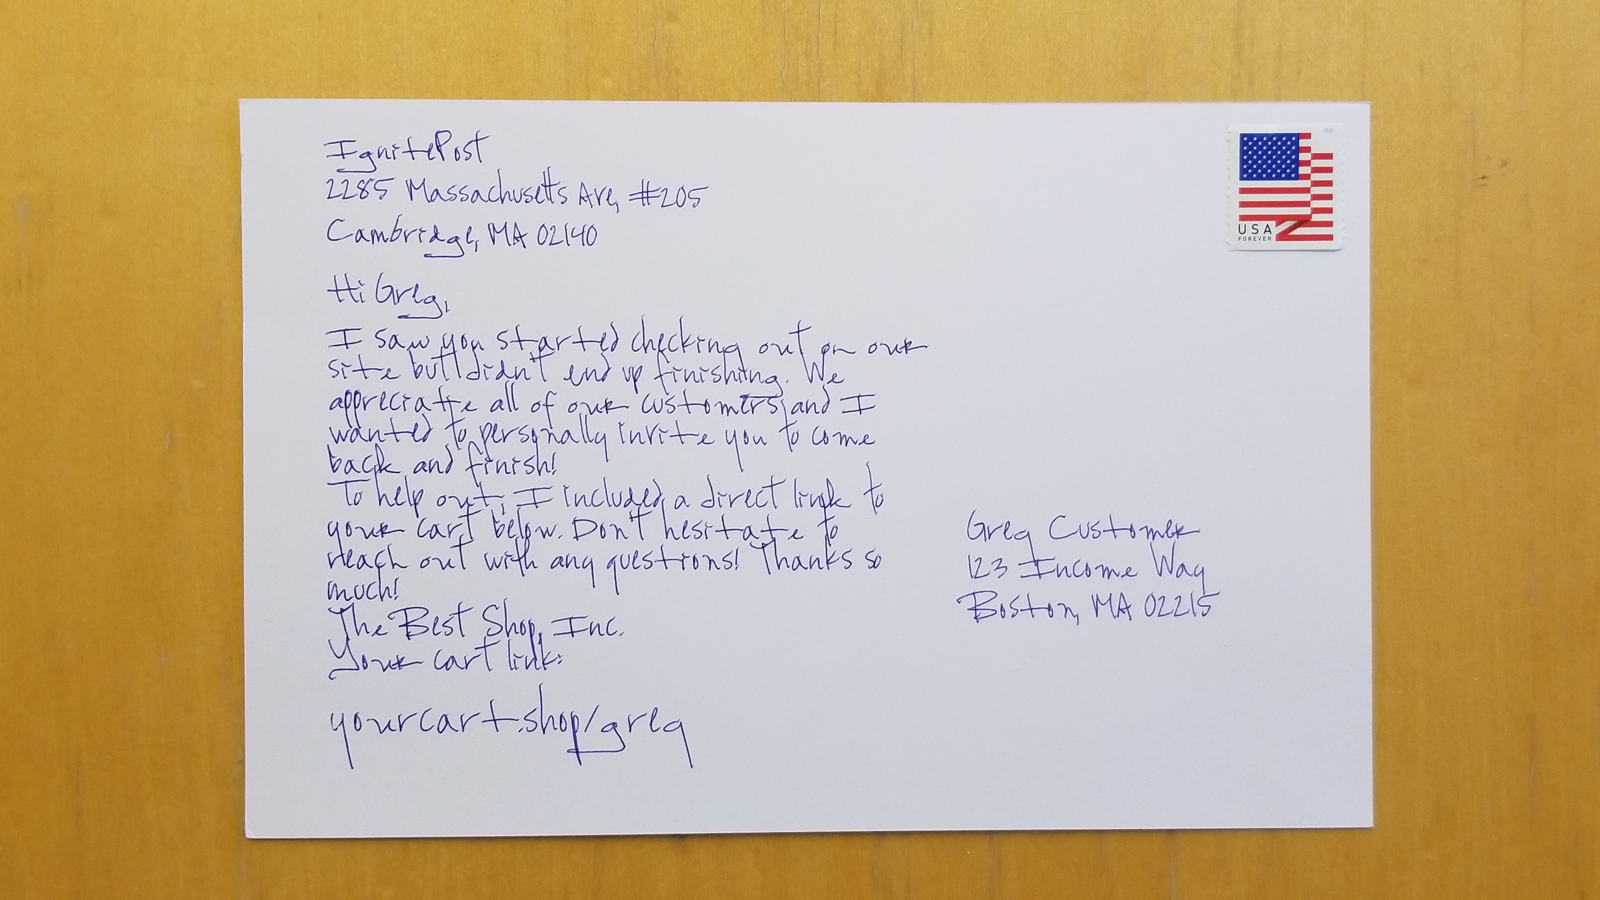 IgnitePost
2285 Massachusetts Ave, #205
Cambridge, MA 02140
USA
FOREVER
Hi Greg,
I saw you started checking out on our
site but didn't end up finishing. We
appreciate all of our customers, and I
wanted to personally invite you to come
back and finish!
To help out, I included a direct link to
your cart below. Don't hesitate to
reach out with any questions! Thanks so
much!
The Best Shop, Inc.
Your cart link:
yourcart.shop/greg
Greg Customer
123 Income Way
Boston, MA 02215